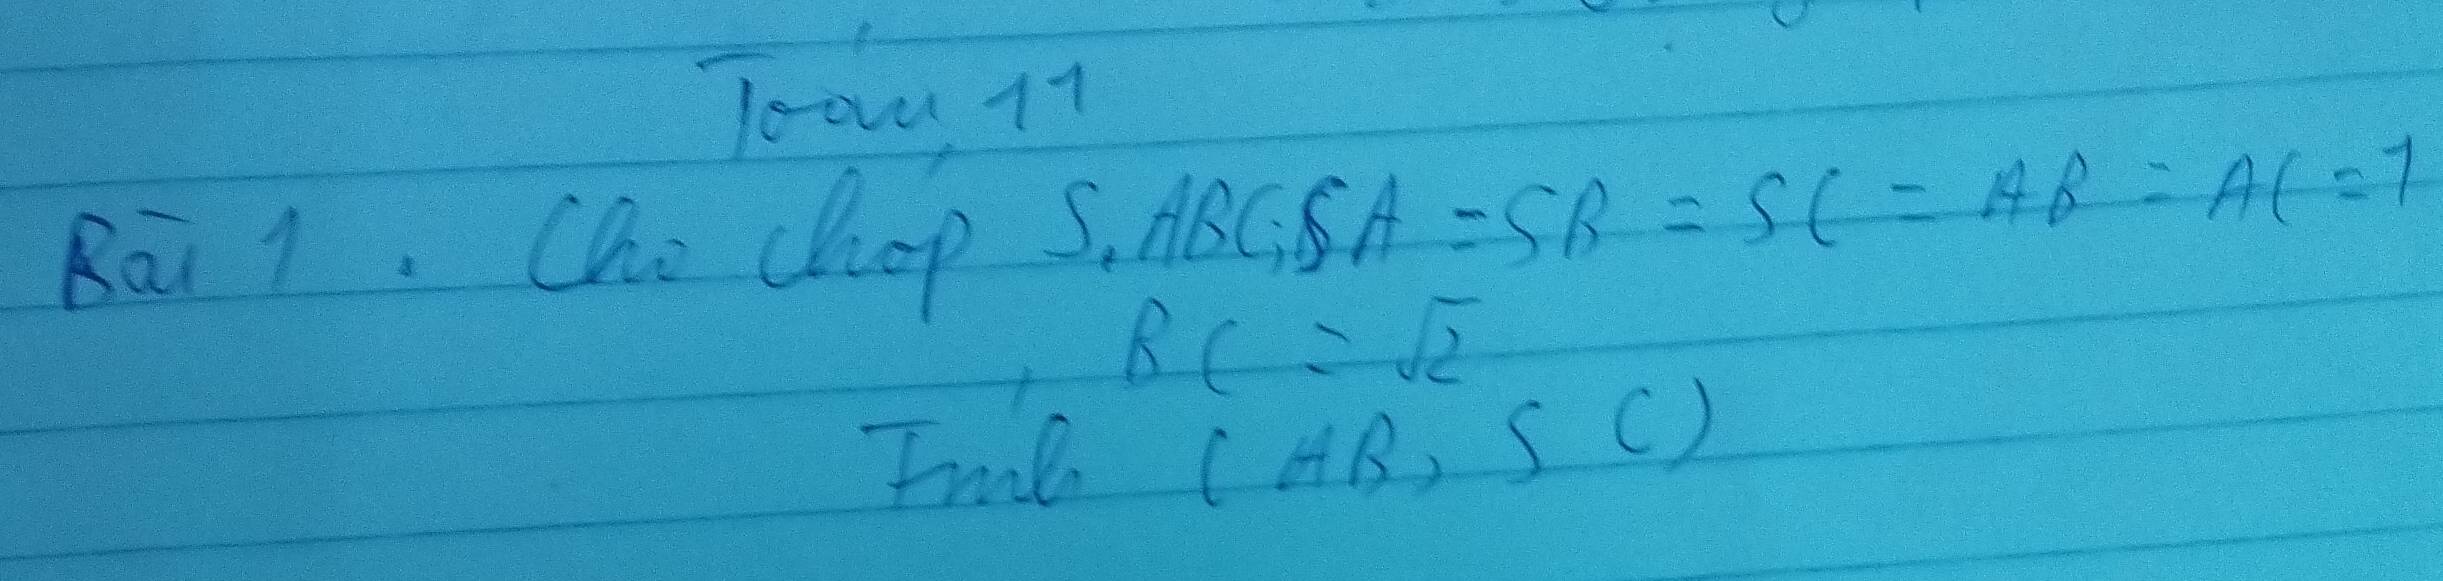 Toán 11
Bài 1. Cho chóp S.ABC; SA = SB = SC = AB = AC = 1
BC = √2
Tính (AB, SC)